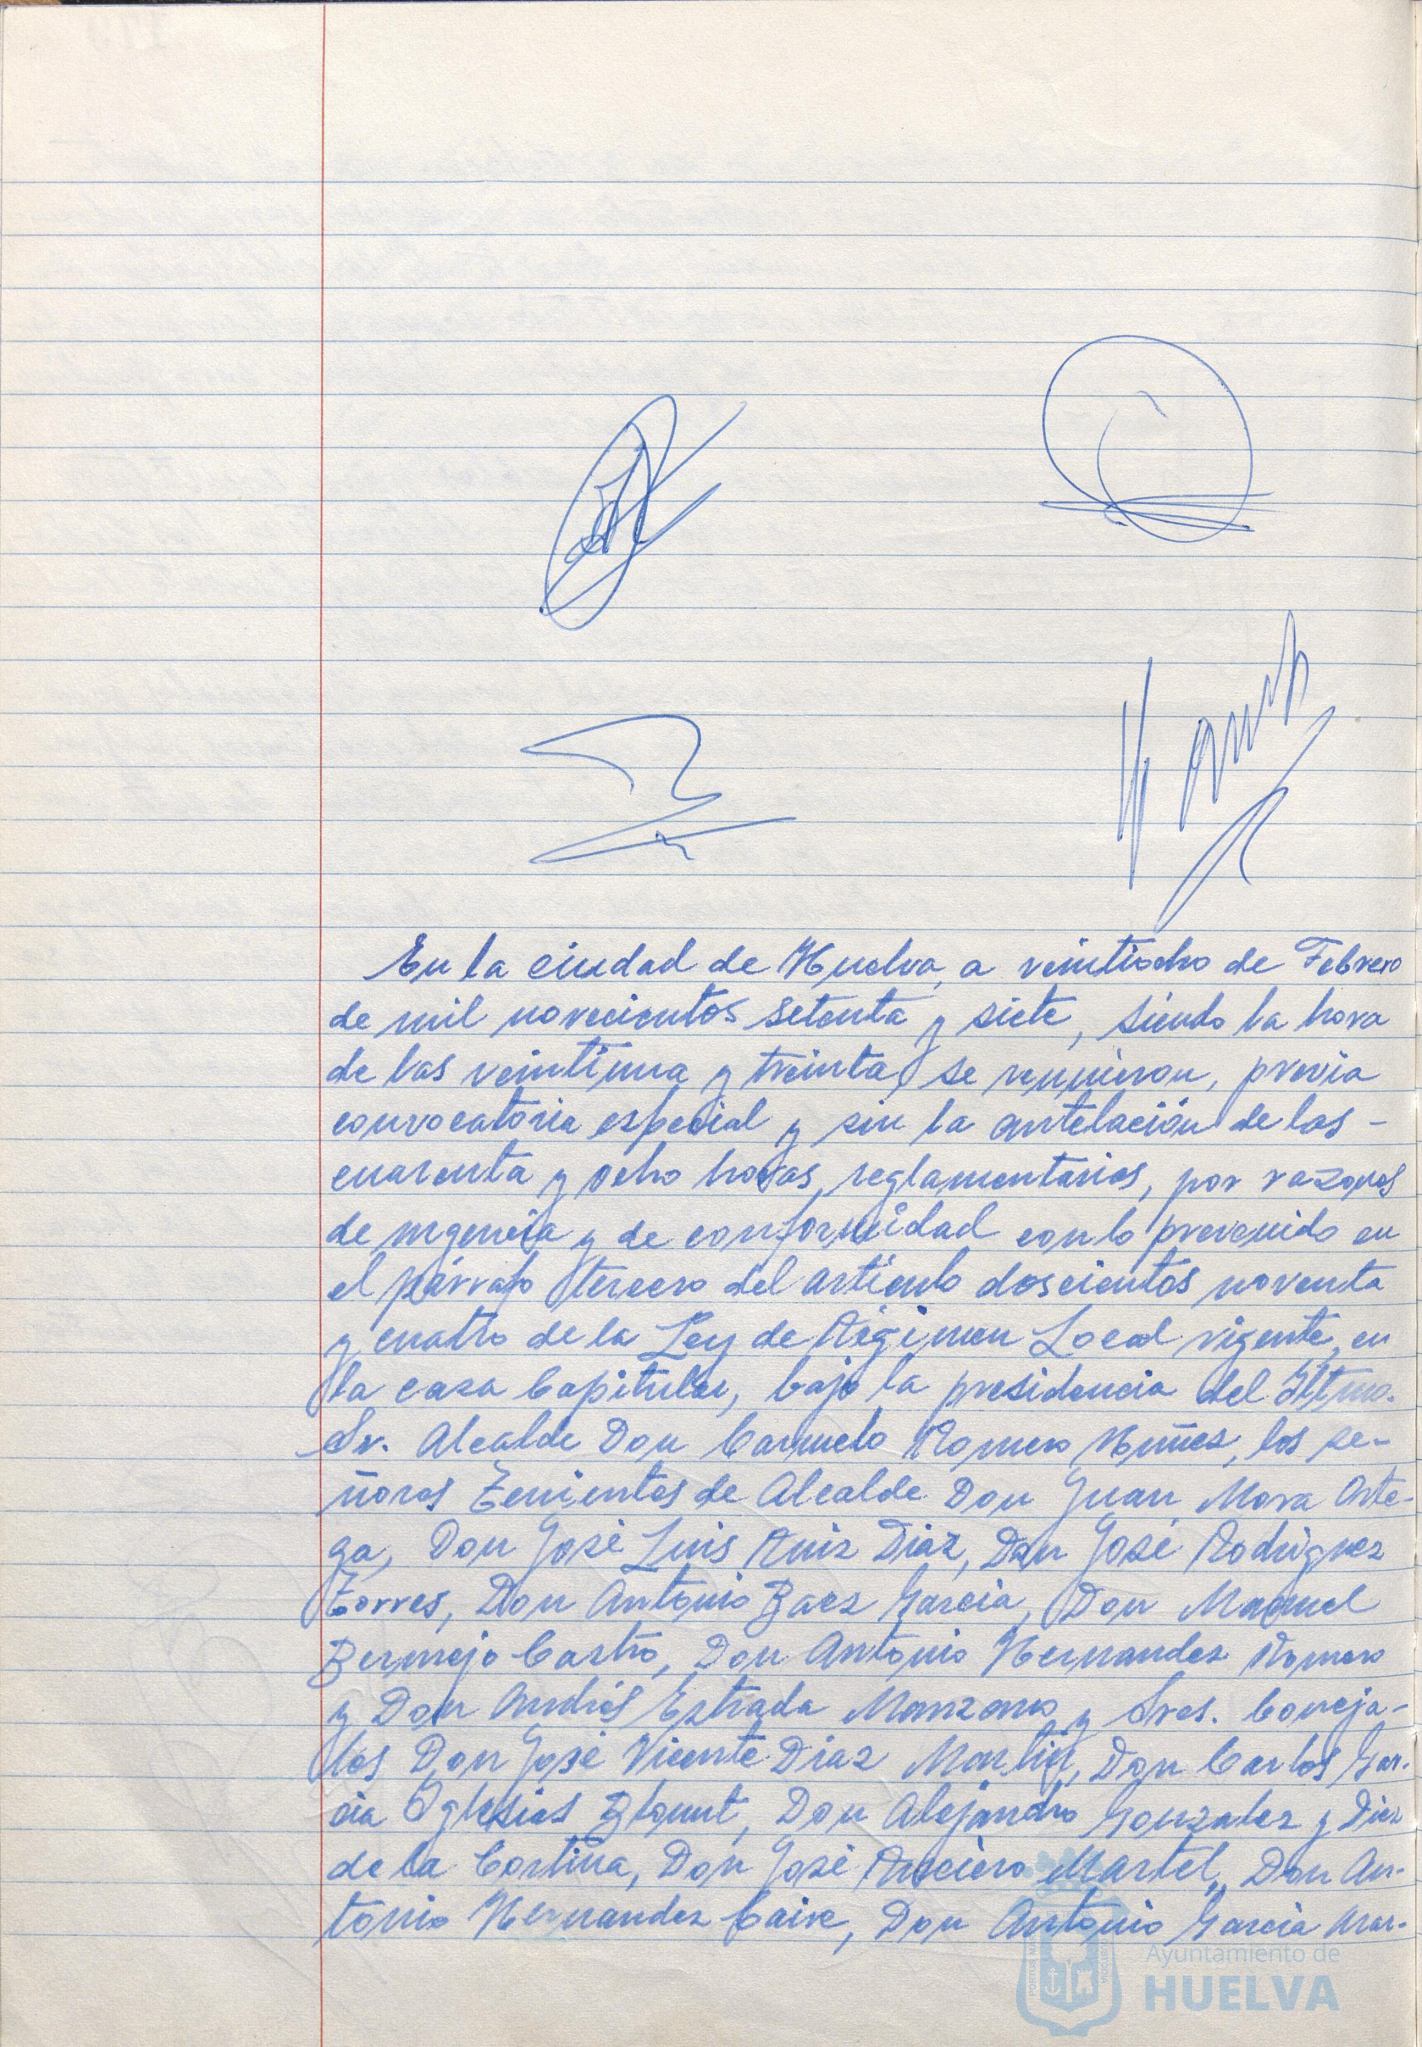 En la ciudad de Huelva, a veintiocho de Febrero
de mil novecientos setenta y siete, siendo la hora
de las veintiuna y treinta, se reunieron, previa
convocatoria especial y sin la antelación de las -
cuarenta y ocho horas, reglamentarias, por razones
de urgencia y de conformidad con lo prevenido en
el párrafo tercero del artículo doscientos noventa
y cuatro de la Ley de Régimen Local vigente, en
la casa Capitular, bajo la presidencia del Iltmo.
Sr. Alcalde Don Carmelo Romero Núñez, los se-
ñores Tenientes de Alcalde Don Juan Mora Orte-
ga, Don José Luis Ruiz Diaz, Don José Rodriguez
Torres, Don Antonio Baez Garcia, Don Manuel
Bermejo Castro, Don Antonio Hernandez Romero
y Don Andrés Estrada Manzano y Sres. Conceja-
les Don José Vicente Diaz Martín, Don Carlos Gar-
cia Yglesias Blount, Don Alejandro Gonzalez y Diez
de la Cortina, Don José Martel, Don An-
tonio Hernandez Don Antonio Garcia
Ayuntamiento de
HUELVA